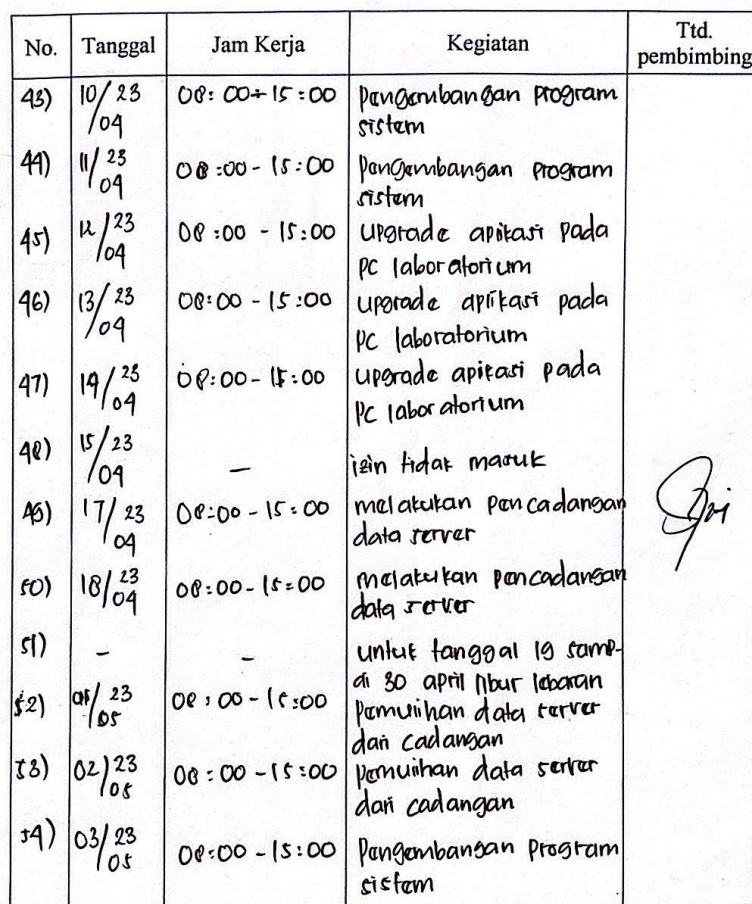 No. Tanggal Jam Kerja Kegiatan Ttd. pembimbing
43) 10/23/04 08:00-15:00 Pengembangan program
sistem
44) 11/23/04 08:00-15:00 Pengembangan program
sistem
45) 12/23/04 08:00-15:00 upgrade aplikasi pada
PC laboratorium
46) 13/23/04 08:00-15:00 upgrade aplikasi pada
PC laboratorium
47) 14/23/04 08:00-15:00 upgrade aplikasi pada
PC laboratorium
48) 15/23/04 - izin tidak masuk
49) 17/23/04 08:00-15:00 melakukan pencadangan
data server
50) 18/23/04 08:00-15:00 melakukan pencadangan
data server
51) - - untuk tanggal 19 samp-
ai 30 april libur lebaran
52) 01/23/05 08:00-15:00 Pemulihan data server
dari cadangan
53) 02/23/05 08:00-15:00 Pemulihan data server
dari cadangan
54) 03/23/05 08:00-15:00 Pengembangan program
sistem